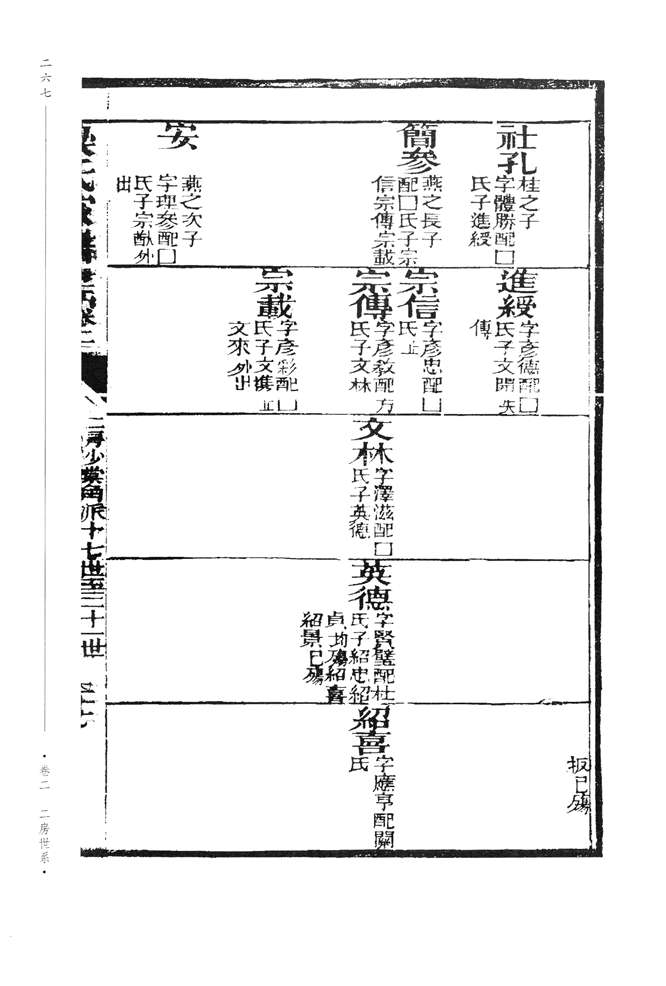 二六七
社孔
桂之子
字體勝配□
氏子進綬
簡參
燕之長子
配□氏子宗
信宗傳宗載
安
燕之次子
字理參配□
氏子宗猷外
出
進綬
字彥德配□
氏子文開失
傳
宗信
字彥忠配□
氏止
宗傳
字彥教配方
氏子文林
宗載
字彥彩配□
氏子文攜止
文來外出
文林
字澤滋配□
氏子英德
英德
字賢璧配杜
氏子紹忠紹
貞均殤紹喜
紹景已殤
扳已殤
紹喜
字應亨配關
氏
二房沙棠角派十七世至二十一世
卷二 二房世系